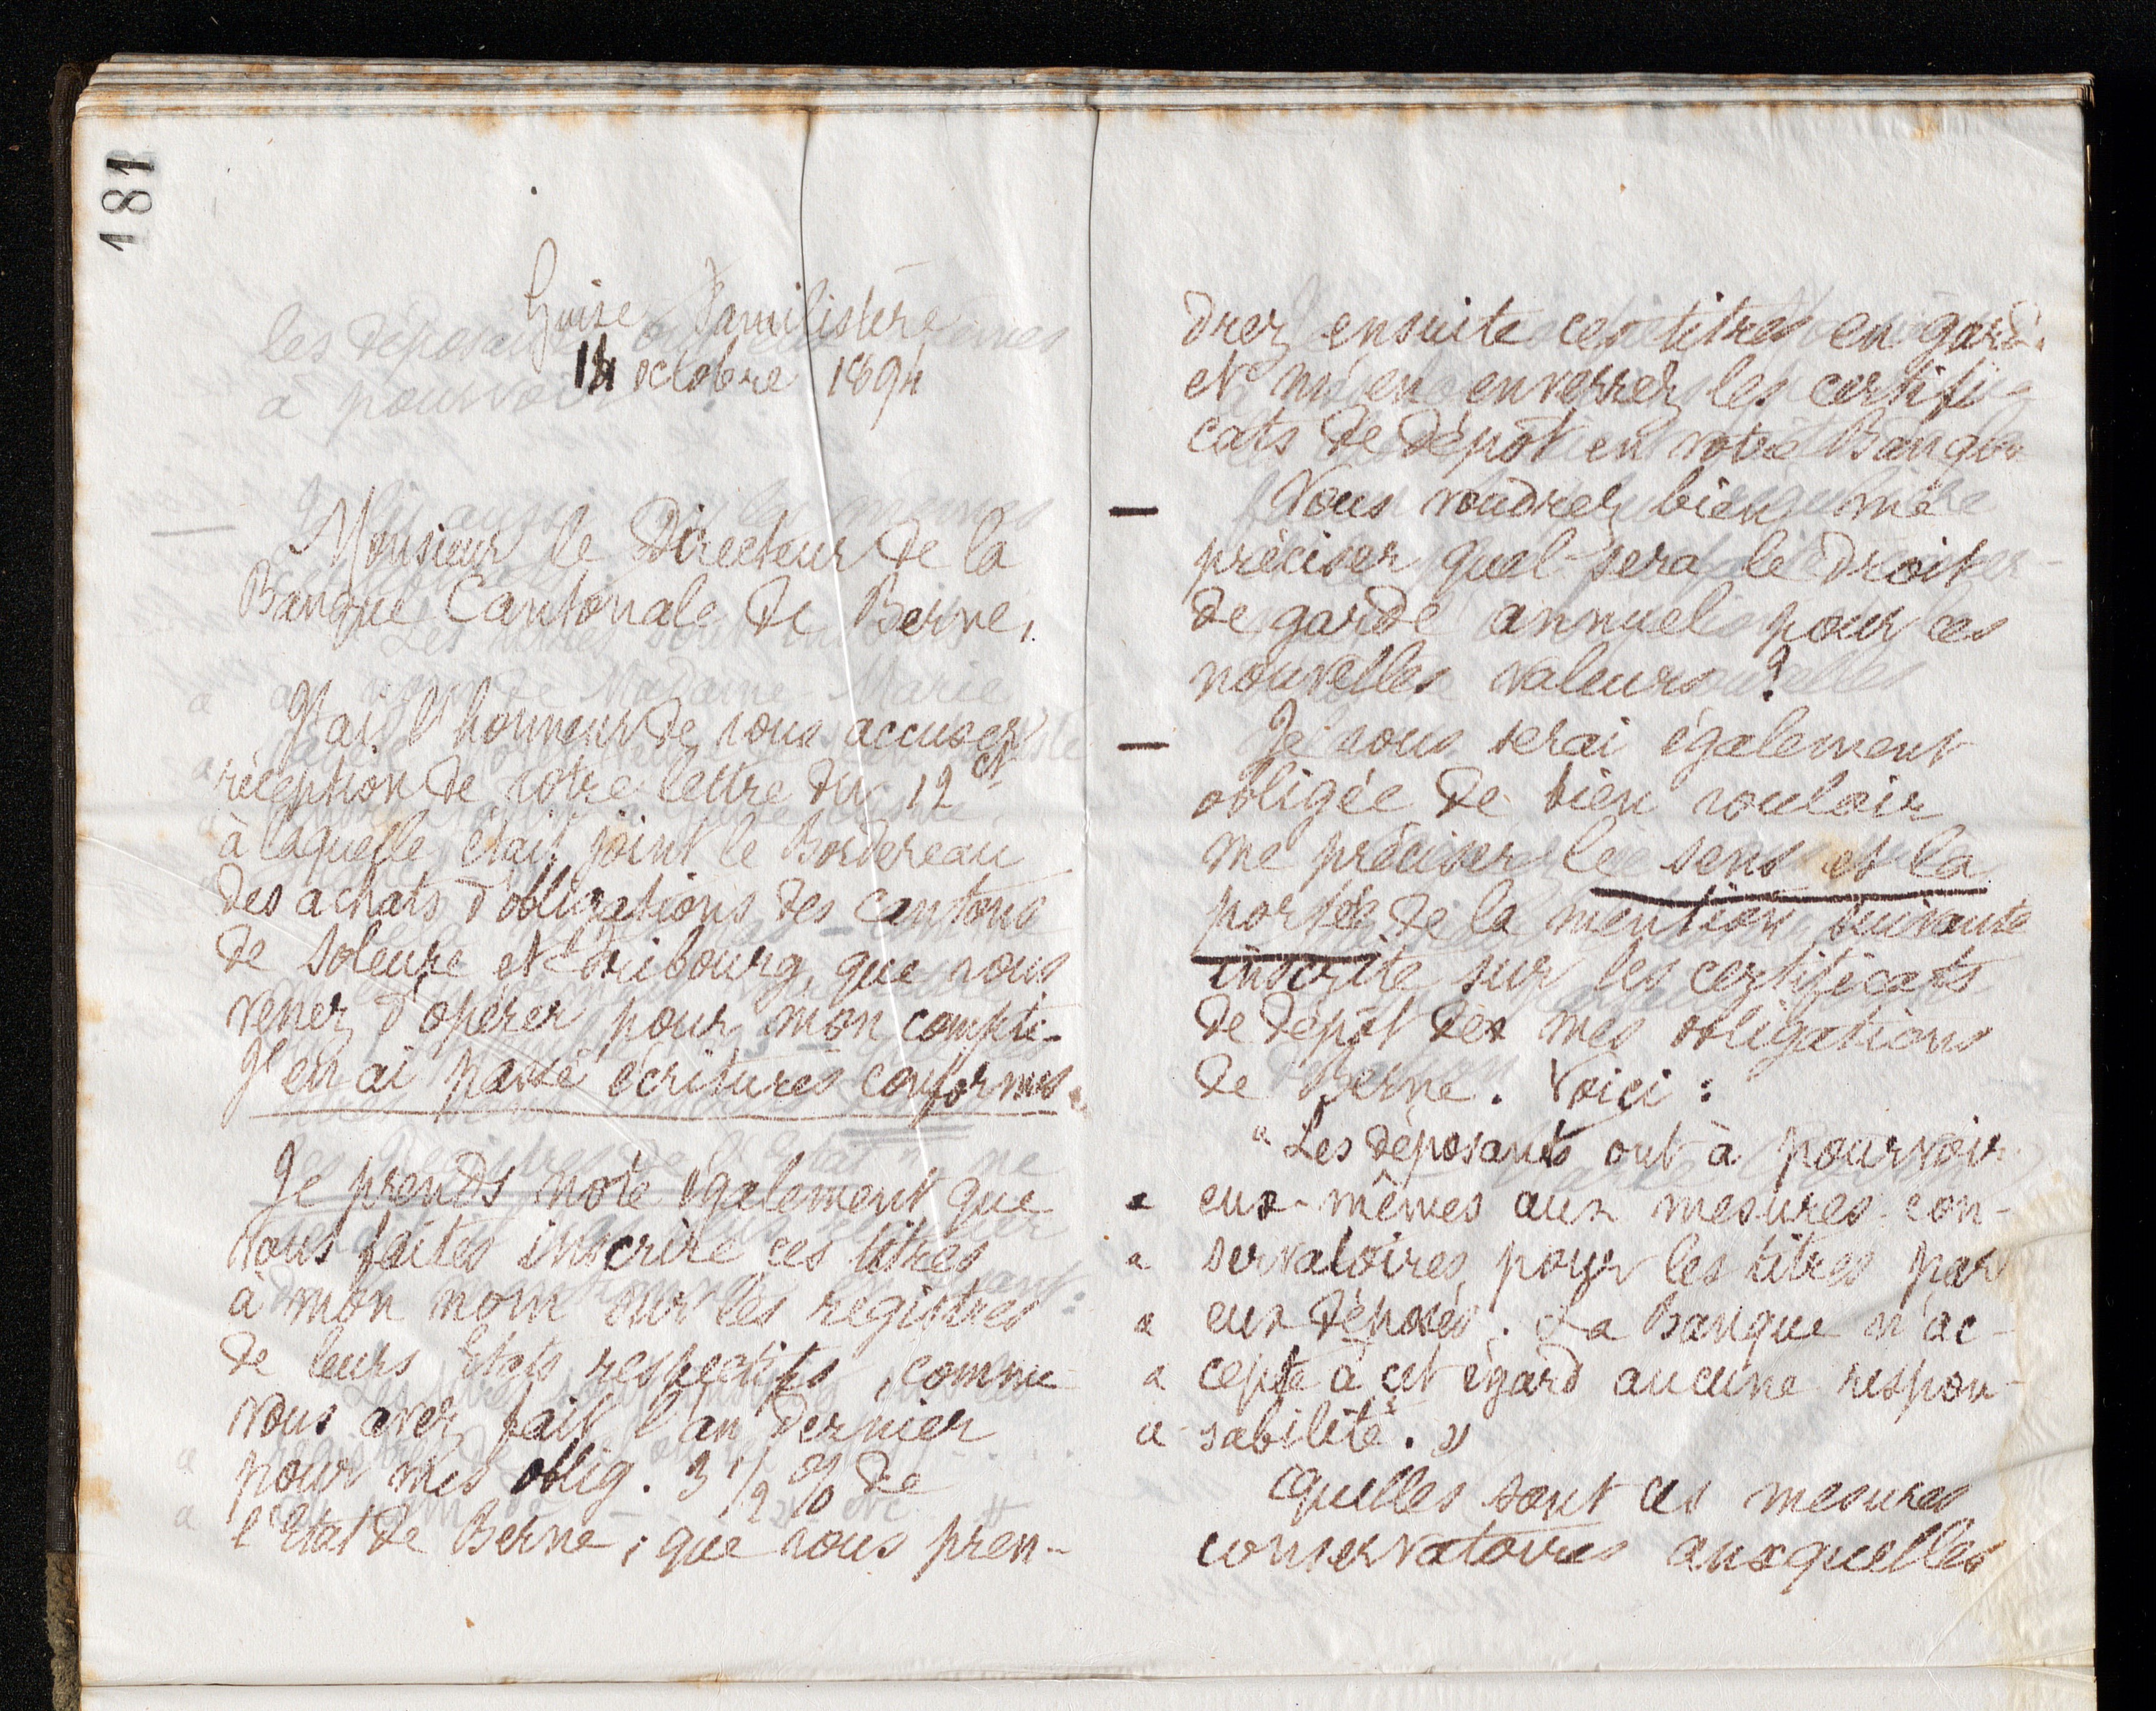 181
Guise Familistère
14 octobre 1894
Monsieur le Directeur de la
Banque Cantonale de Berne,
J'ai l'honneur de vous accuser
réception de votre lettre du 12 ct
à laquelle était joint le Bordereau
des achats d'obligations des cantons
de Soleure et Fribourg, que vous
venez d'opérer pour mon compte.
J'en ai passé écritures conformes.
Je prends note également que
vous faites inscrire ces titres
à mon nom sur les registres
de leurs Etats respectifs, comme
vous avez fait l'an dernier
pour mes oblig. 3 1/2 % de
l'Etat de Berne; que vous pren-
drez ensuite ces titres en garde
et m'en enverrez les certifi-
cats de dépôt en votre Banque
— Vous voudrez bien me
préciser quel sera le droit
de garde annuel pour ces
nouvelles valeurs?
— Je vous serai également
obligée de bien vouloir
me préciser le sens et la
portée de la mention suivante
inscrite sur les certificats
de dépôt de mes obligations
de Berne. Voici:
« Les déposants ont à pourvoir
« eux-mêmes aux mesures con-
« servatoires pour les titres par
« eux déposés. La Banque n'ac-
« cepte à cet égard aucune respon-
« sabilité. »
Quelles sont ces mesures
conservatoires auxquelles